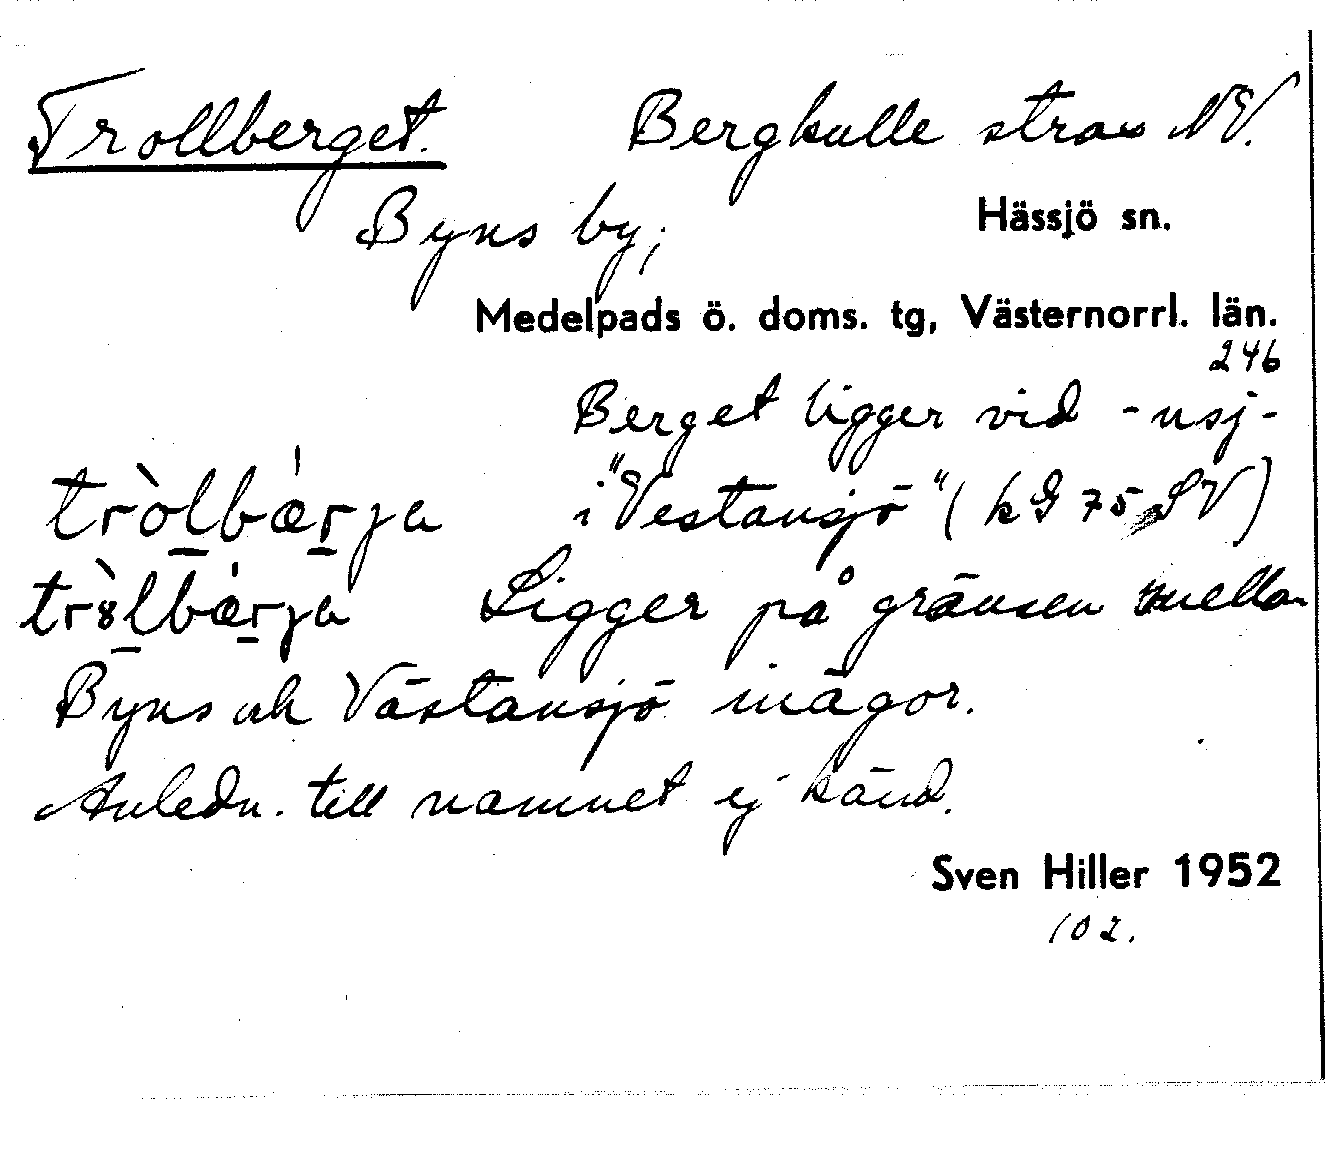 Trollberget. Bergkulle strax NV.
Byns by; Hässjö sn.
Medelpads ö. doms. tg, Västernorrl. län.
246
Berget ligger vid -nsj-
tròlbǽrja i "Vestansjö" (kG 75 SV)
tròlbǽrja Ligger på gränsen mellan
Byns och Västansjö inägor.
Anledn. till namnet ej känd.
Sven Hiller 1952
102.